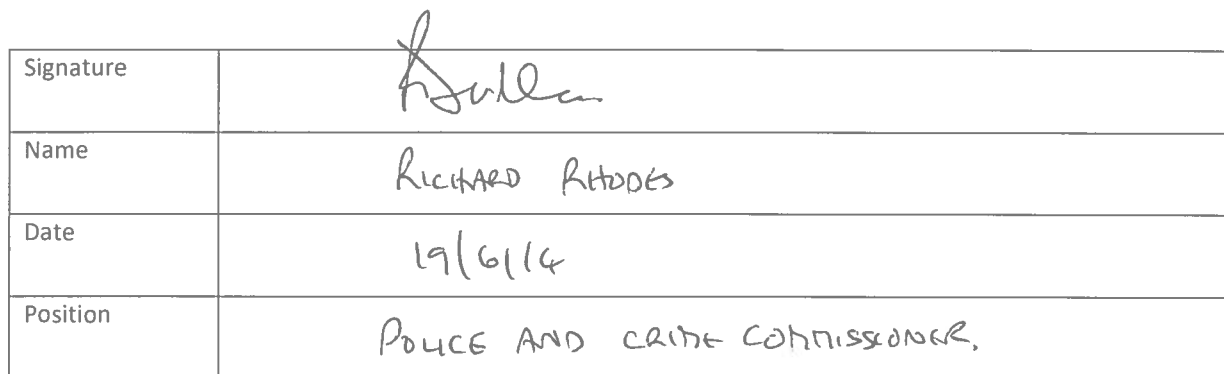 Signature
Name RICHARD RHODES
Date 19/6/14
Position POLICE AND CRIME COMMISSIONER.